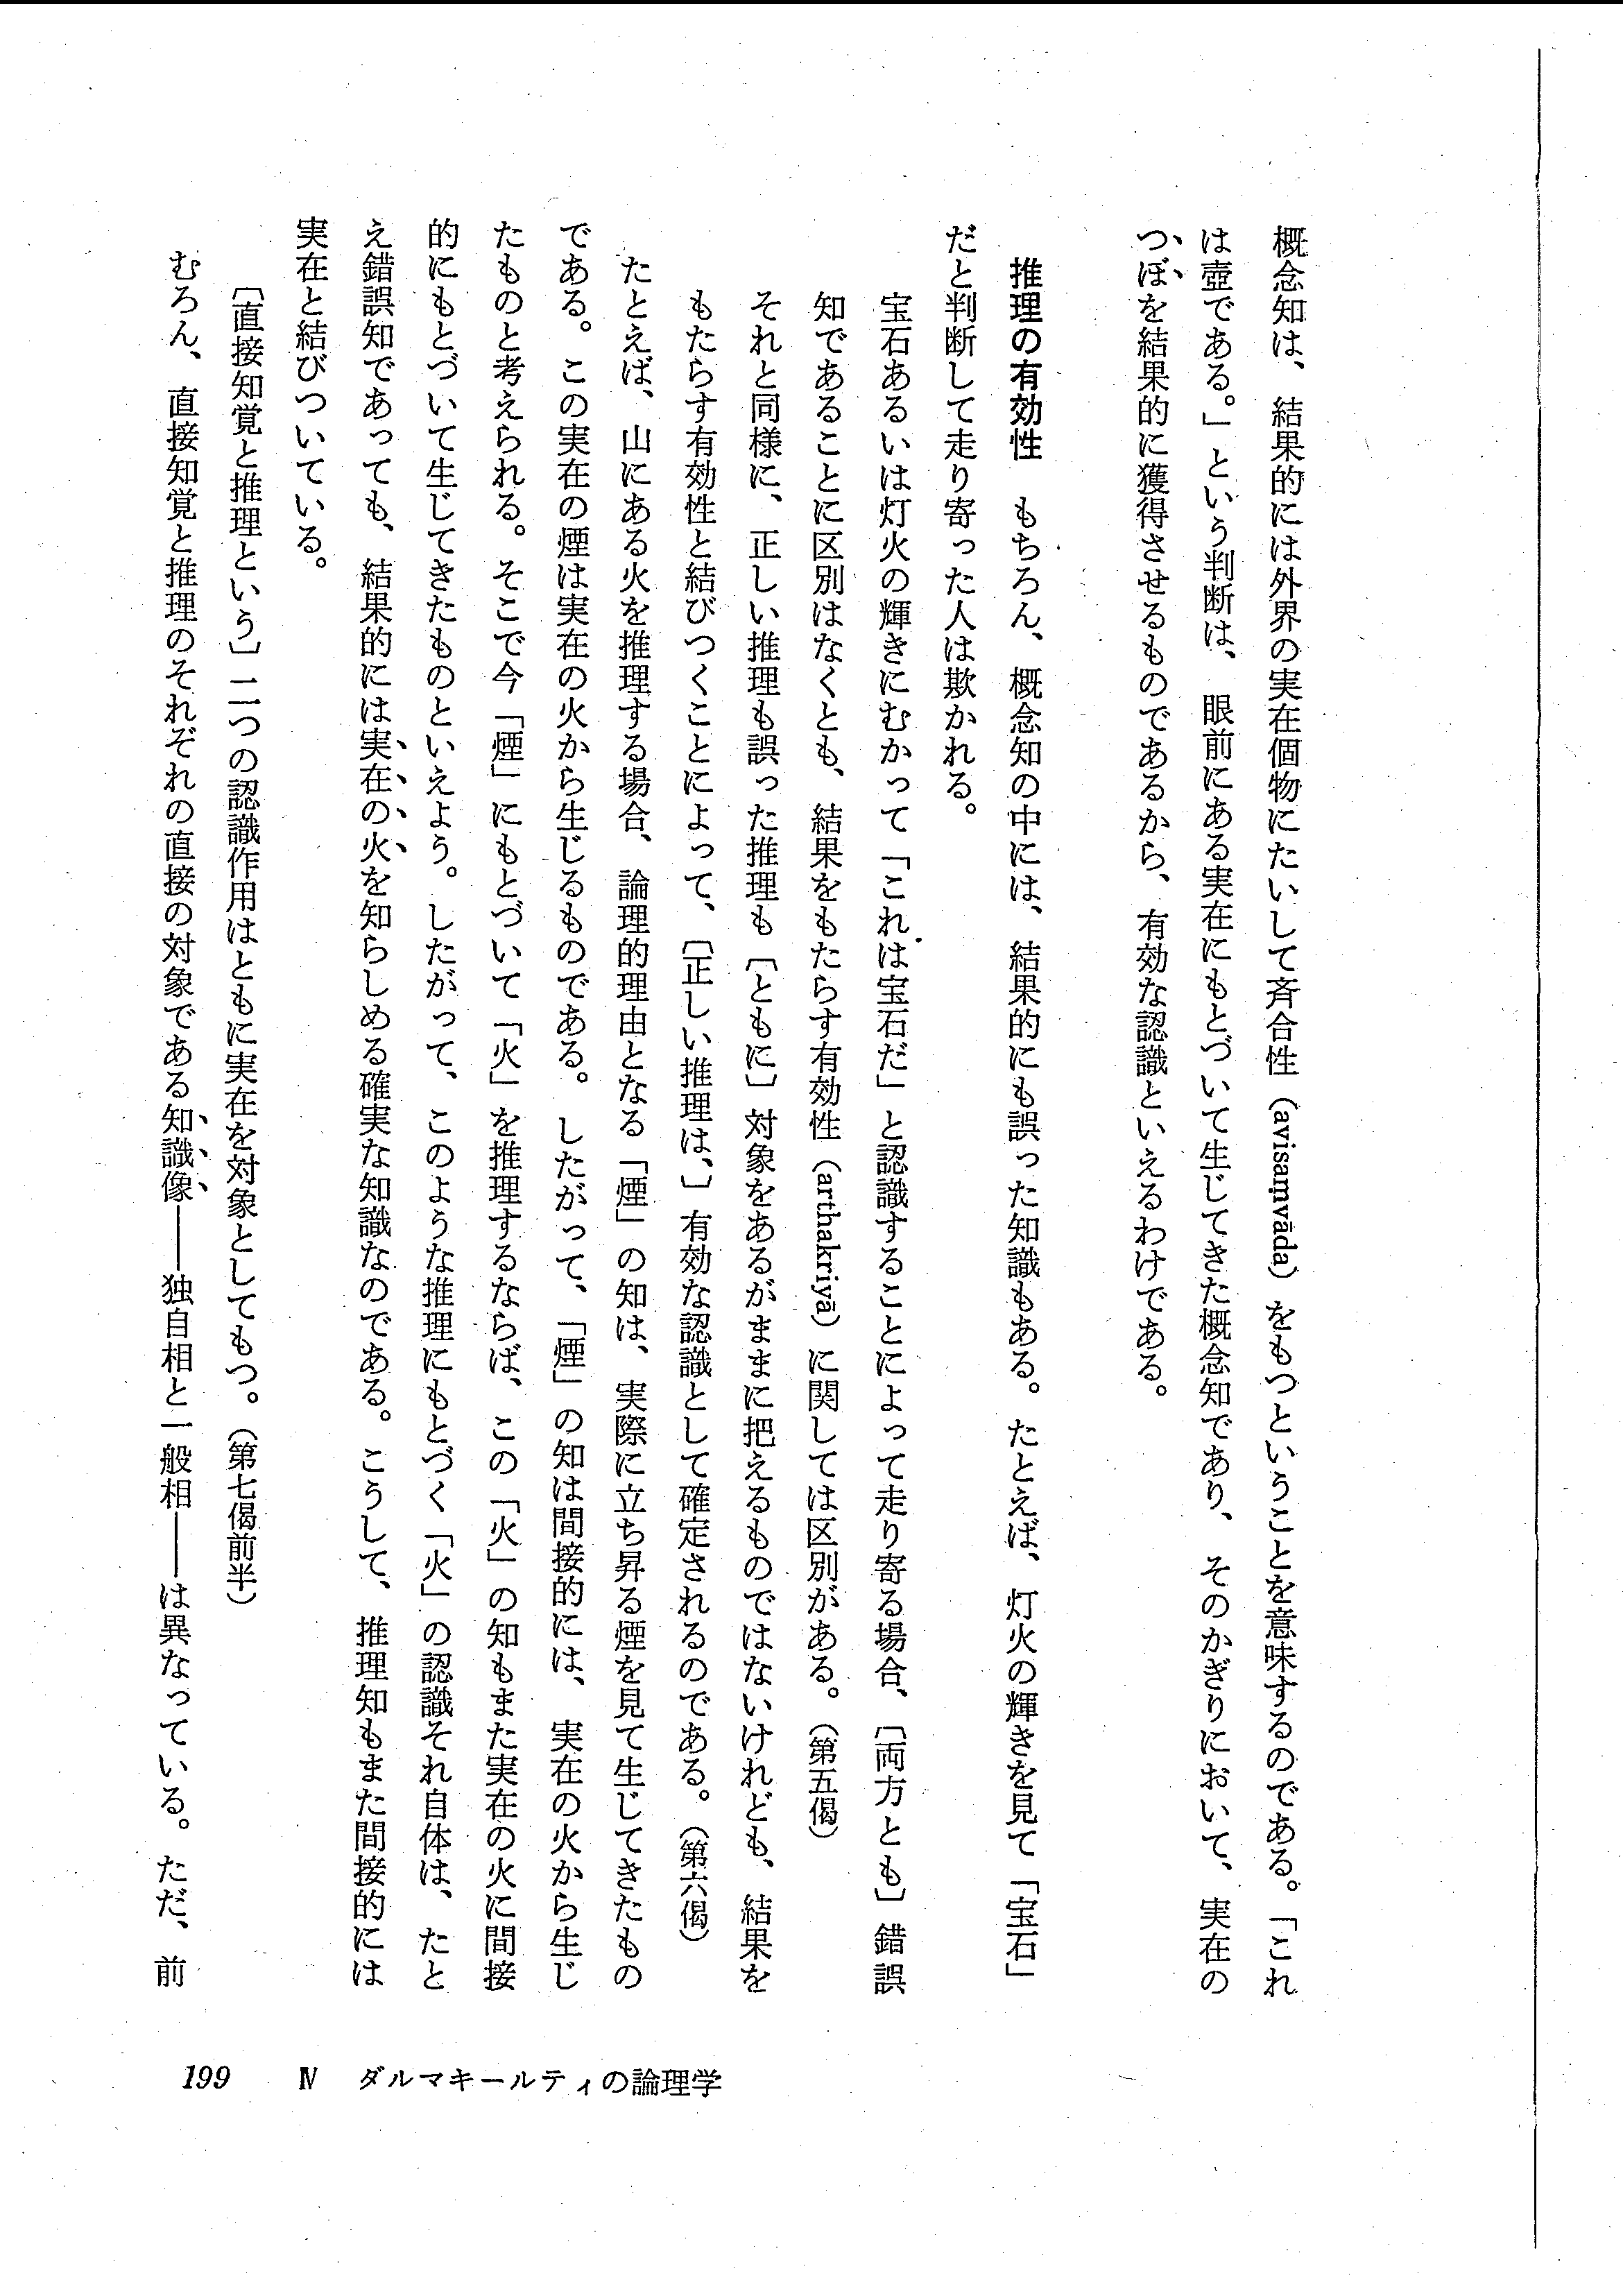 概念知は、結果的には外界の実在個物にたいして斉合性（avisaṃvāda）をもつということを意味するのである。「これ
は壺である。」という判断は、眼前にある実在にもとづいて生じてきた概念知であり、そのかぎりにおいて、実在の
つぼを結果的に獲得させるものであるから、有効な認識といえるわけである。
推理の有効性　もちろん、概念知の中には、結果的にも誤った知識もある。たとえば、灯火の輝きを見て「宝石」
だと判断して走り寄った人は欺かれる。
宝石あるいは灯火の輝きにむかって「これは宝石だ」と認識することによって走り寄る場合、〔両方とも〕錯誤
知であることに区別はなくとも、結果をもたらす有効性（arthakriyā）に関しては区別がある。（第五偈）
それと同様に、正しい推理も誤った推理も〔ともに〕対象をあるがままに把えるものではないけれども、結果を
もたらす有効性と結びつくことによって、〔正しい推理は、〕有効な認識として確定されるのである。（第六偈）
たとえば、山にある火を推理する場合、論理的理由となる「煙」の知は、実際に立ち昇る煙を見て生じてきたもの
である。この実在の煙は実在の火から生じるものである。したがって、「煙」の知は間接的には、実在の火から生じ
たものと考えられる。そこで今「煙」にもとづいて「火」を推理するならば、この「火」の知もまた実在の火に間接
的にもとづいて生じてきたものといえよう。したがって、このような推理にもとづく「火」の認識それ自体は、たと
え錯誤知であっても、結果的には実在の火を知らしめる確実な知識なのである。こうして、推理知もまた間接的には
実在と結びついている。
〔直接知覚と推理という〕二つの認識作用はともに実在を対象としてもつ。（第七偈前半）
むろん、直接知覚と推理のそれぞれの直接の対象である知識像――独自相と一般相――は異なっている。ただ、前
199　Ⅳ　ダルマキールティの論理学